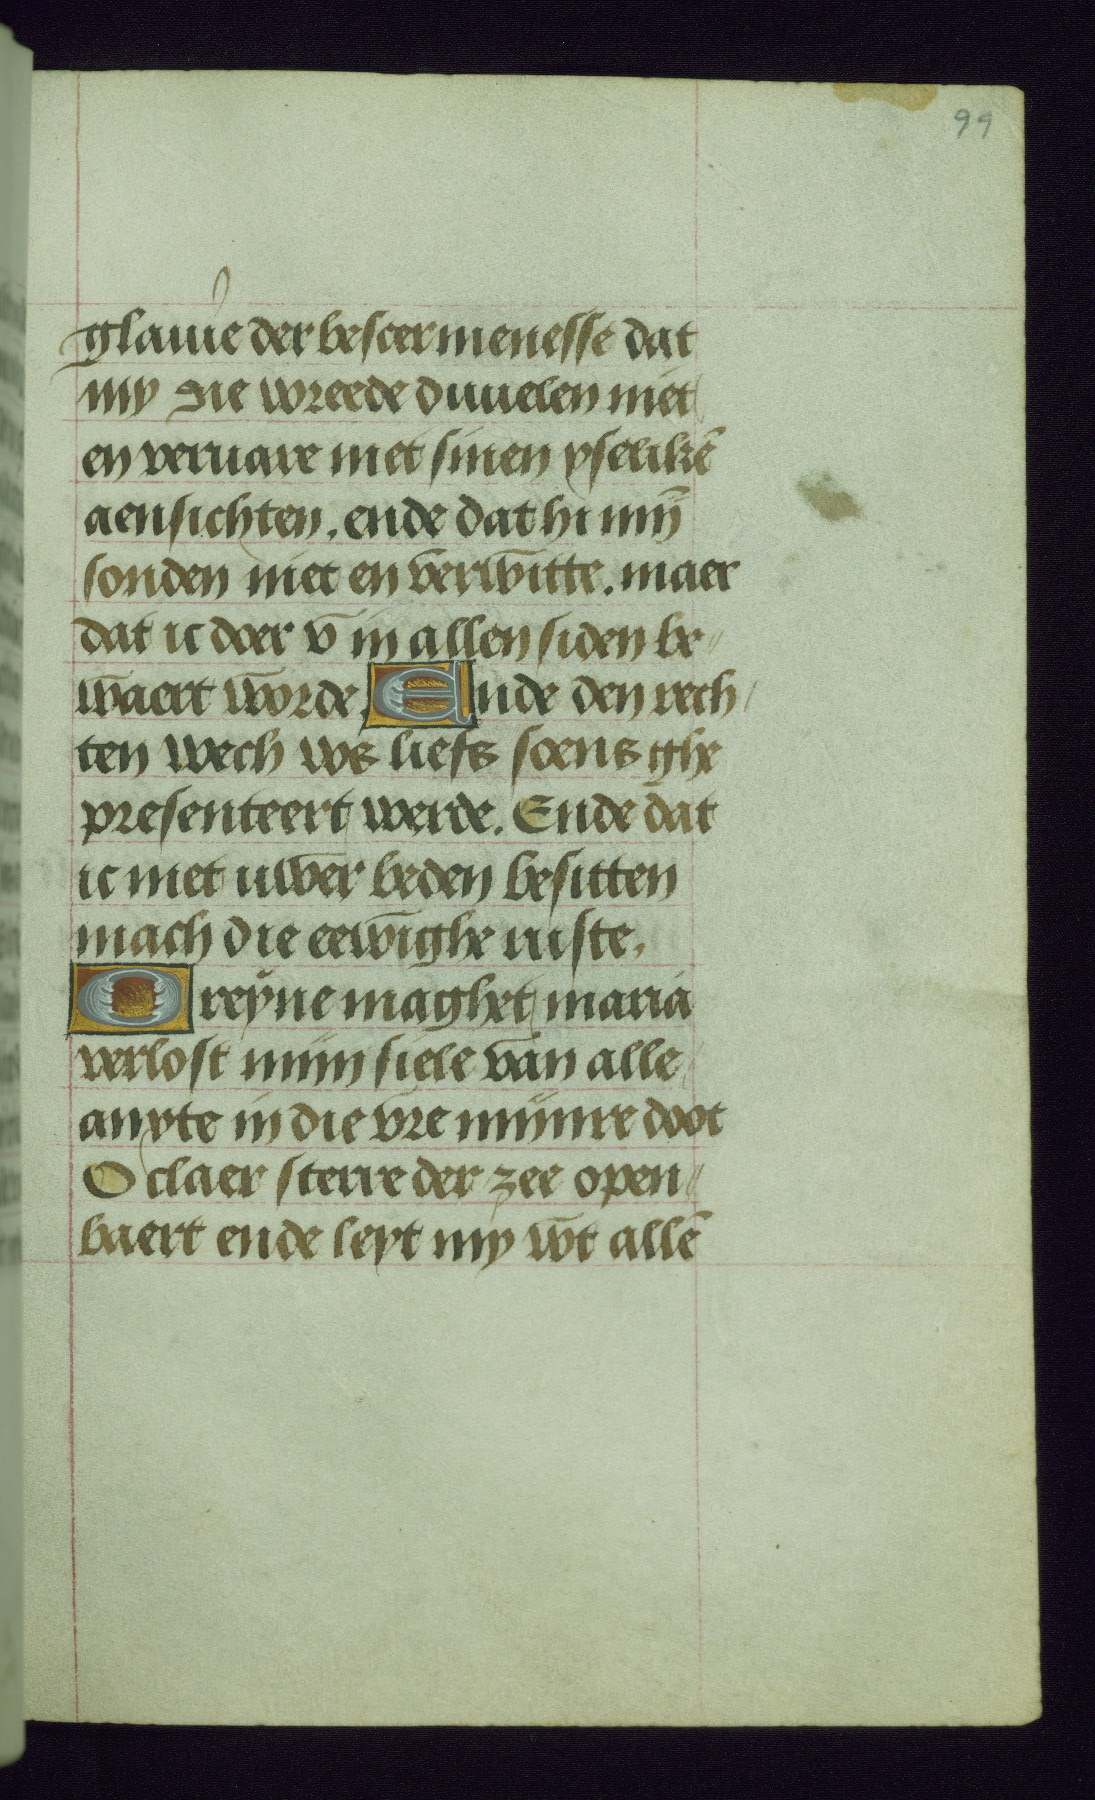 99
glauie der bescermenesse dat
my die wreede duuelen niet
en veruare met sinen yselikē
aensichten. ende dat hi mijn̄
sonden niet en verwitte. maer
dat ic doer v in allen siden be
waert worde. Ende den rech
ten wech ws liefs soens ghe
presenteert werde. Ende dat
ic met uwer beden besitten
mach die eewighe ruste.
O reyne maghet maria
verlost mijn siele van alle
anxte in die vre mijnre doot
O claer sterre der zee open
baert ende leyt my wt allē